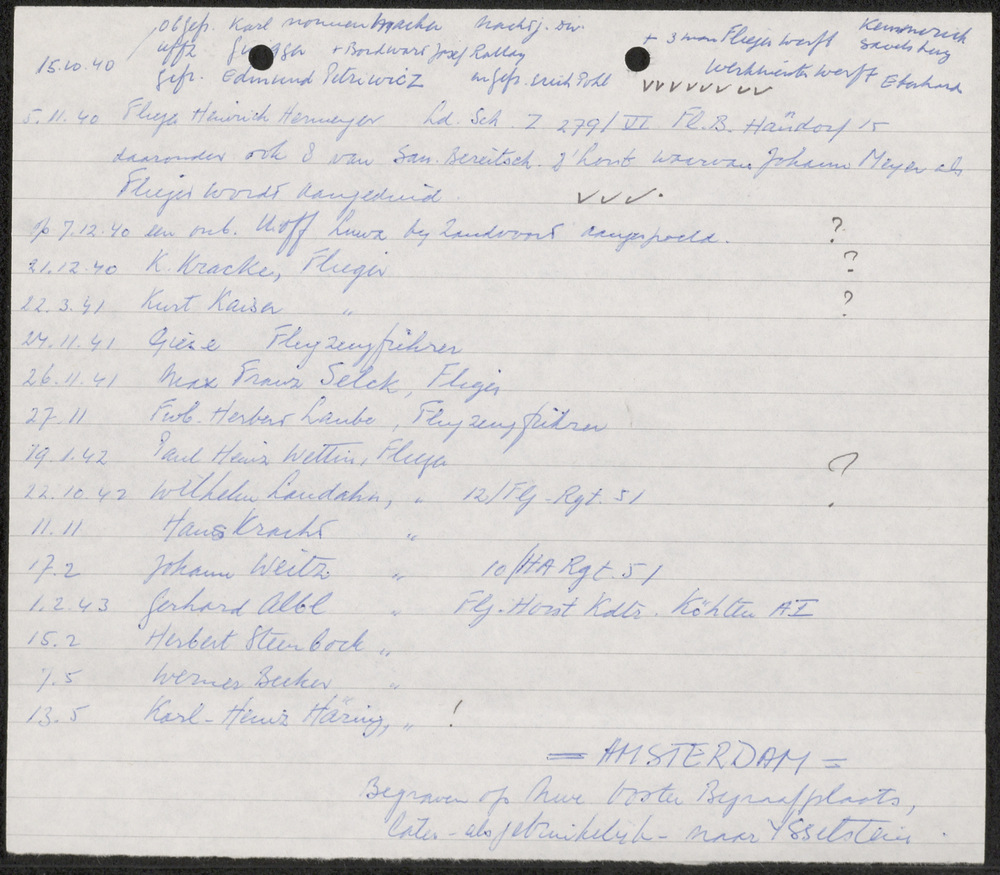 Obgefr. Karl Nonnenmacher Nachtj. Div.
15.10.40 Uffz + Bordwart Josef Rallay + 3 man Flieger Werft
Gefr. Edmund Petriwicz Erich Pohl Werft Eberhard
✓✓✓✓✓✓✓
5.11.40 Flieger Heinrich Hermeyer Ld. Sch. Z 279/VI Fl.B. 15
daaronder ook 8 van San. Bereitsch. waarvan Johann Meyer als
Flieger wordt aangeduid. ✓✓✓.
op 7.12.40 een onb. Uoff Luwa by Zandvoort aangespoeld. ?
21.12.40 K. Kracke, Flieger ?
22.3.41 Kurt Kaiser " ?
24.11.41 Giese Flugzeugführer
26.11.41 Max Franz Selck, Flieger
27.11 Fwb. Herbert Laube, Flugzeugführer
19.1.42 Paul Heinz Wettin, Flieger
22.10.42 Wilhelm Landahn, " 12/Flg-Rgt. 51 ?
11.11 Hans Kracht "
17.2 Johann Weitz " 10/HA Rgt. 51
1.2.43 Gerhard Albl " Flg-Horst Kdtr. Köhten AI
15.2 Herbert Steinbock "
7.5 Werner Becker "
13.5 Karl-Heinz Häring, " !
= AMSTERDAM =
Begraven op Nwe Ooster Begraafplaats,
later - als gebruikelyk - naar YSSelstein.